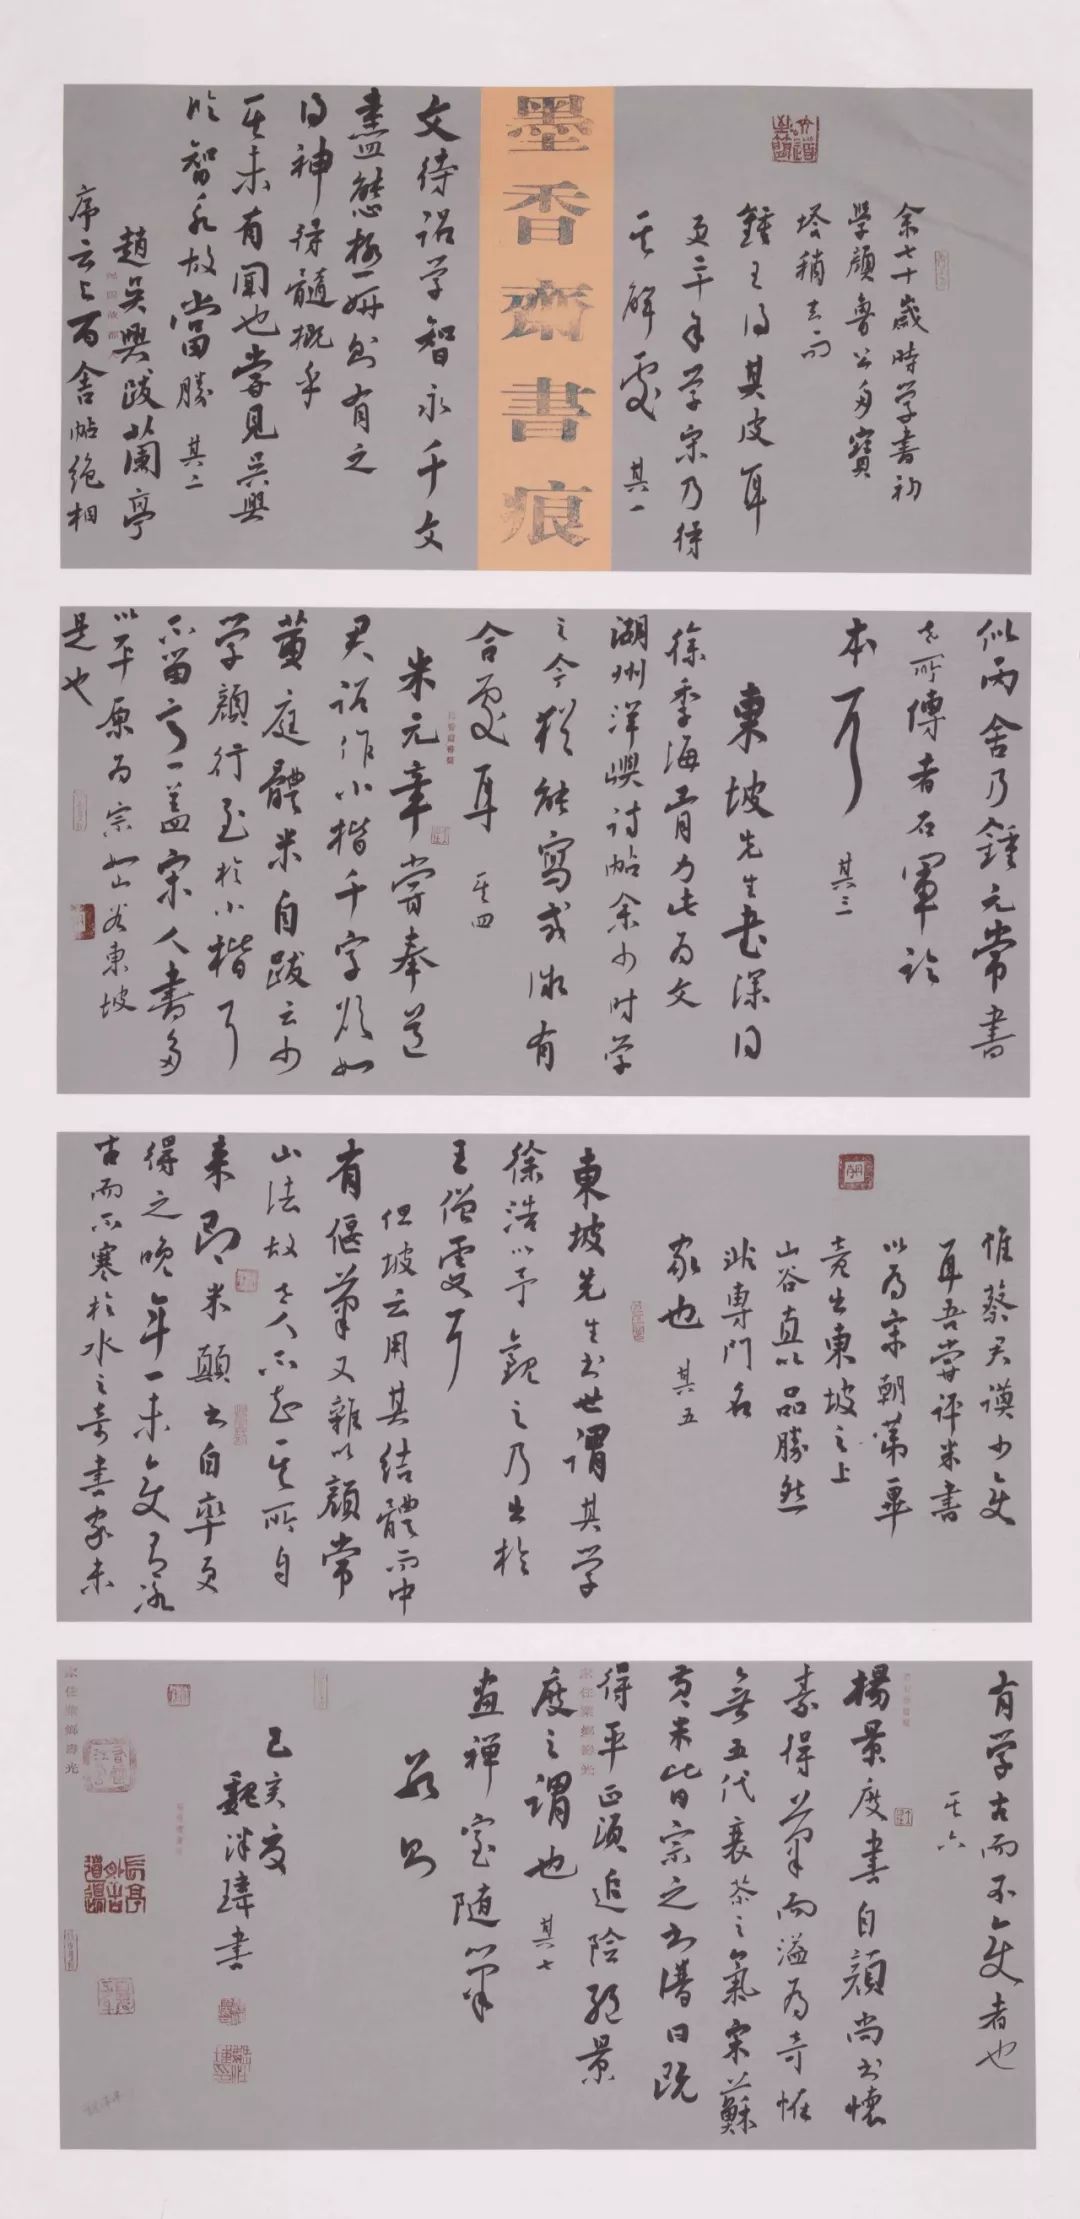 余七十歲時学書初
学顏魯公多寳
塔稍去而
鍾王得其皮耳
更三十年学宋乃得
其解處 其一
墨香齋書痕
文待诏学智永千文
盡態極妍則有之
得神得髓概乎
其未有聞也嘗見吴興
臨智永故當勝 其二
趙吴興跋蘭亭
序云与丙舍帖絶相
似丙舍乃鍾元常書
世所傳者右軍臨
本耳 其三
東坡先生書深得
徐季海骨力此為文
湖州洋嶼诗帖余少时学
之今猶能寫或微有
合處耳 其四
米元章嘗奉道
君诏作小楷千字欲如
黄庭體米自跋云少
学顔行至於小楷了
不留意盖宋人書多
以平原為宗如山谷東坡
是也
惟蔡君谟少變
耳吾嘗评米書
以為宋朝第一畢
竟出東坡之上
山谷直以品勝然
非専門名
家也 其五
東坡先生书世謂其学
徐浩以予觀之乃出於
王僧虔耳
但坡云用其结體而中
有偃筆又雜以顔常
山法故世人不知其所自
来即米顛书自率更
得之晚年一来變有冰
出而不寒於水之奇書家未
有学古而不變者也
其六
楊景度書自顔尚书懷
素得筆而溢為奇怪
無五代衰苶之氣宋蘇
黄米皆宗之书谱曰既
得平正須追险絶景
度之謂也 其七
画禅室随筆
数则
己亥夏
魏泮璋書